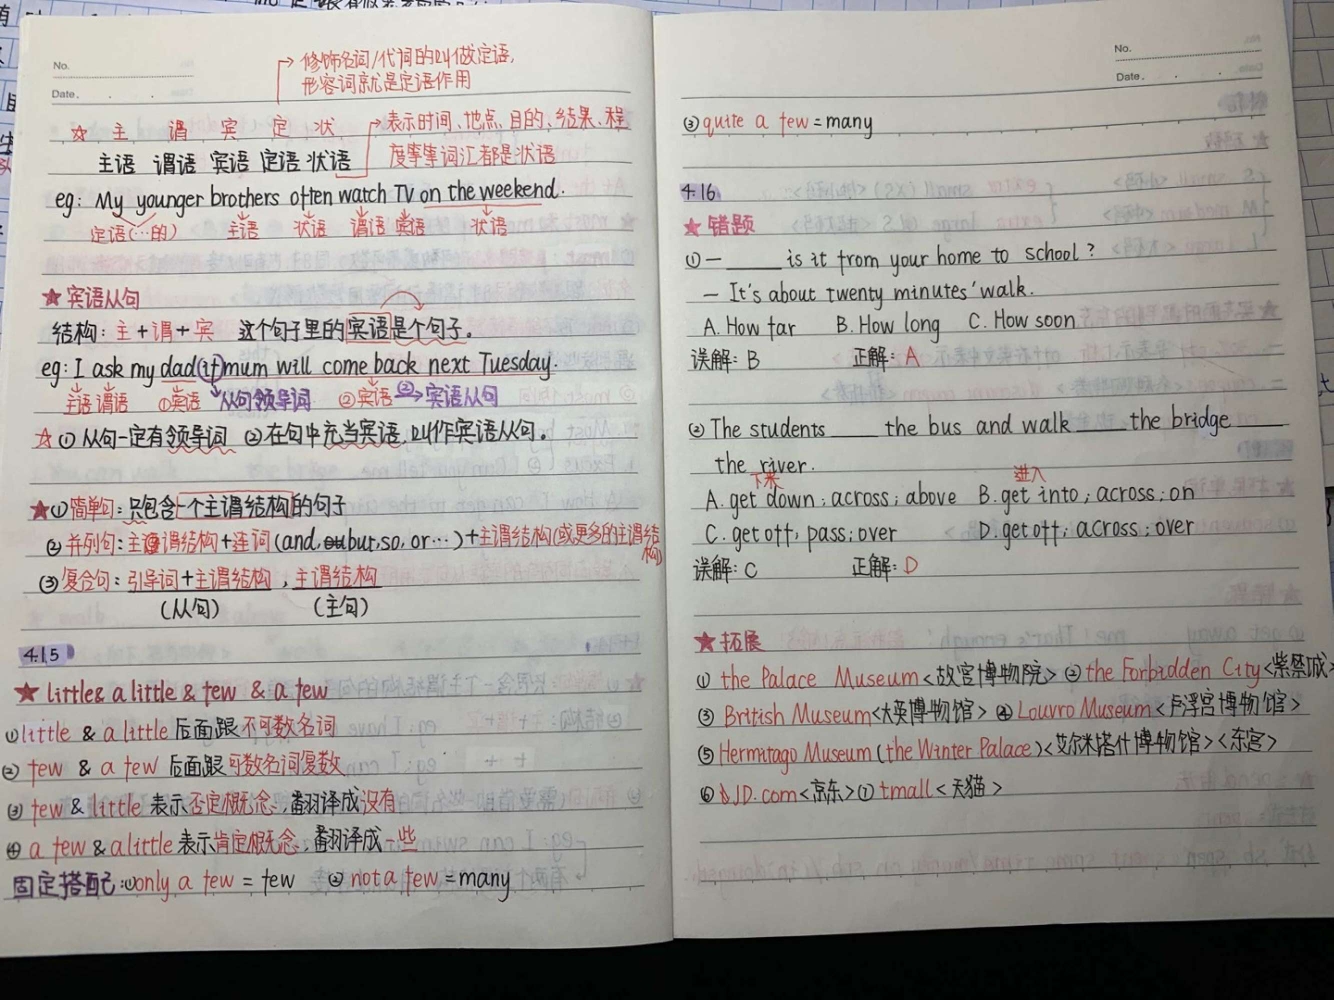 No.
Date.
修饰名词/代词的叫做定语,
形容词就是定语作用
☆ 主 谓 宾 定 状
表示时间、地点、目的、结果、程
度等等词汇都是状语
主语 谓语 宾语 定语 状语
eg: My younger brothers often watch TV on the weekend.
定语(…的) 主语 状语 谓语 宾语 状语
★宾语从句
结构: 主+谓+宾 这个句子里的宾语是个句子。
eg: I ask my dad if mum will come back next Tuesday.
主语 谓语 ①宾语 从句领导词 ②宾语 ②→宾语从句
☆ ① 从句一定有领导词 ②在句中充当宾语,叫作宾语从句。
★①简单句: 只包含一个主谓结构的句子
②并列句: 主谓结构+连词(and, but, so, or…)+主谓结构(或更多的主谓结
构)
③复合句: 引导词+主谓结构, 主谓结构
(从句) (主句)
4.15
★ little & a little & few & a few
①little & a little 后面跟不可数名词
② few & a few 后面跟可数名词复数
③ few & little 表示否定概念, 翻译成没有
④ a few & a little 表示肯定概念, 翻译成一些
固定搭配: ①only a few = few ②not a few = many
No.
Date.
③quite a few = many
4.16
★错题
①— ____ is it from your home to school?
— It's about twenty minutes' walk.
A. How far B. How long C. How soon
误解: B 正解: A
② The students ____ the bus and walk ____ the bridge ____
the river.
下来 进入
A. get down; across; above B. get into; across; on
C. get off; pass; over D. get off; across; over
误解: C 正解: D
★拓展
① the Palace Museum<故宫博物院> ② the Forbidden City<紫禁城>
③ British Museum<大英博物馆> ④ Louvro Museum<卢浮宫博物馆>
⑤ Hermitago Museum (the Winter Palace)<艾尔米塔什博物馆><东宫>
⑥ JD.com<京东> ⑦ tmall<天猫>